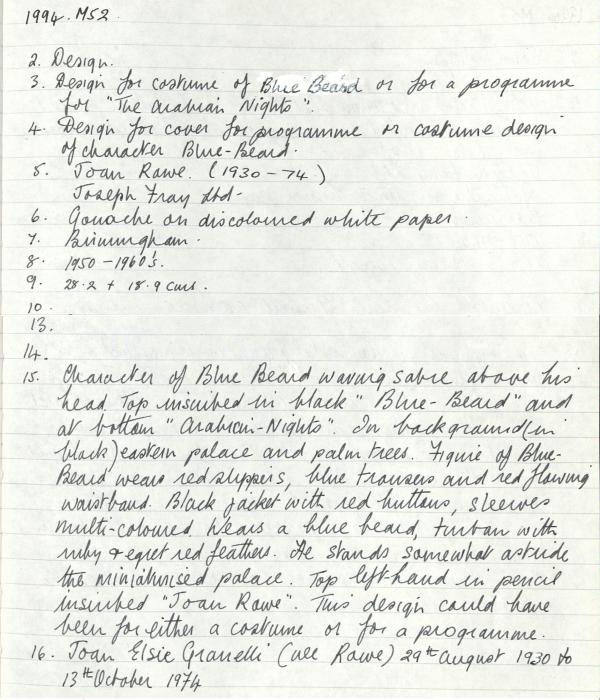 1994. M52
2. Design.
3. Design for costume of Blue Beard or for a programme
for "The Arabian Nights".
4. Design for cover for programme or costume design
of character Blue-Beard.
5. Joan Rowe. (1930-74)
Joseph Fray Ltd-
6. Gouache on discoloured white paper.
7. Birmingham.
8. 1950-1960's.
9. 28.2 + 18.9 cms.
10.
13.
14.
15. Character of Blue Beard waving sabre above his
head. Top inscribed in black "Blue-Beard" and
at bottom "Arabian-Nights". In background (in
black) eastern palace and palm trees. Figure of Blue-
Beard wears red slippers, blue trousers and red flowing
waistband. Black jacket with red buttons, sleeves
multi-coloured. Wears a blue beard, turban with
ruby & egret red feathers. He stands somewhat astride
the miniaturised palace. Top left-hand in pencil
inscribed "Joan Rowe". This design could have
been for either a costume or for a programme.
16. Joan Elsie Granelli (nee Rowe) 29th August 1930 to
13th October 1974